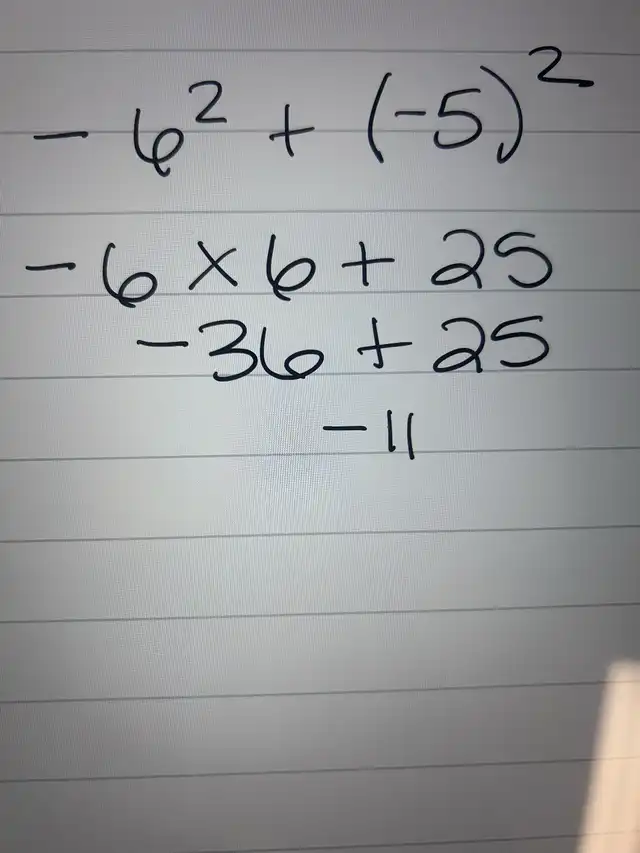 - 6² + (-5)²
- 6 × 6 + 25
- 36 + 25
- 11